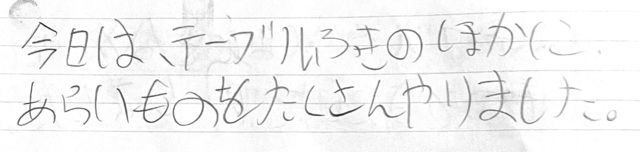 今日は、テーブルふきのほかに
あらいものをたくさんやりました。